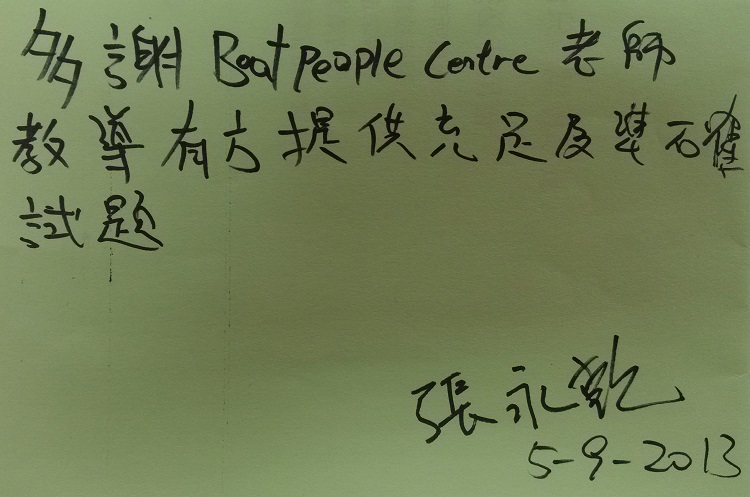 多謝 Boat People Centre 老師
教導有方提供充足及準確
試題
張永乾
5-9-2013